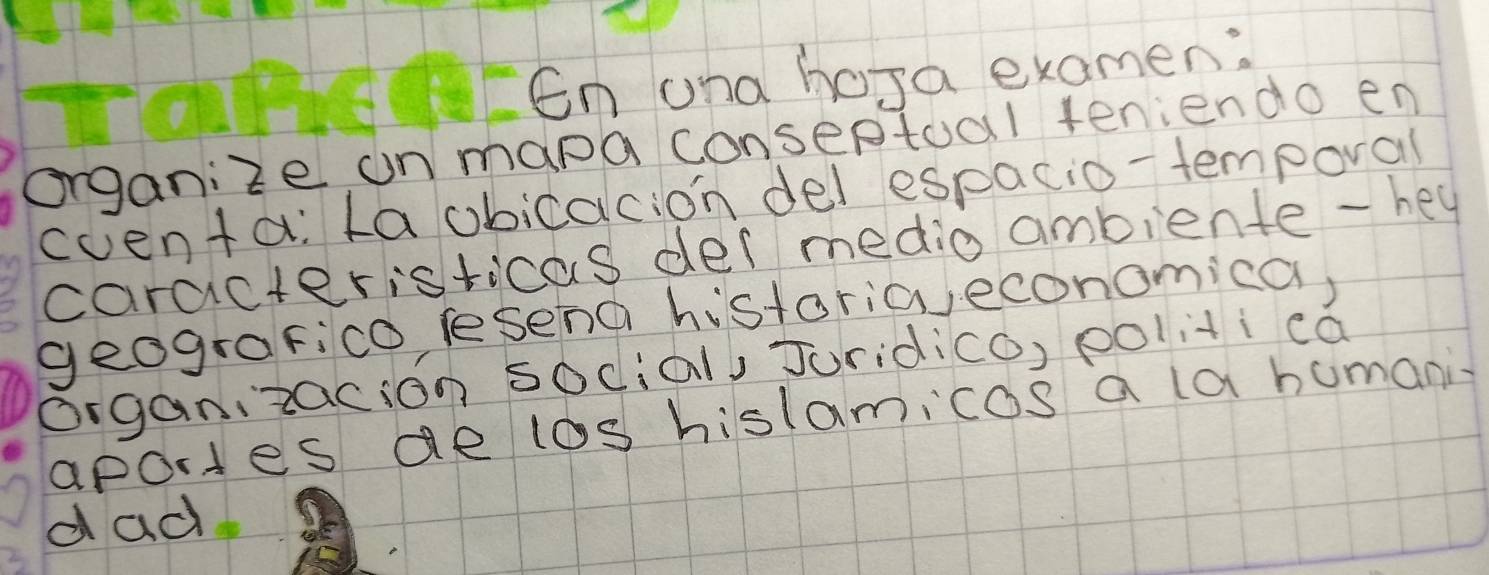 TAREA: En una hoja examen:
organize un mapa conseptual teniendo en
cuenta: La ubicación del espacio-temporal
caracteristicas del medio ambiente - hey
geografico, resena historia, economica,
organización social, Juridico, politica
aportes de los hislamicos a la humani-
dad.